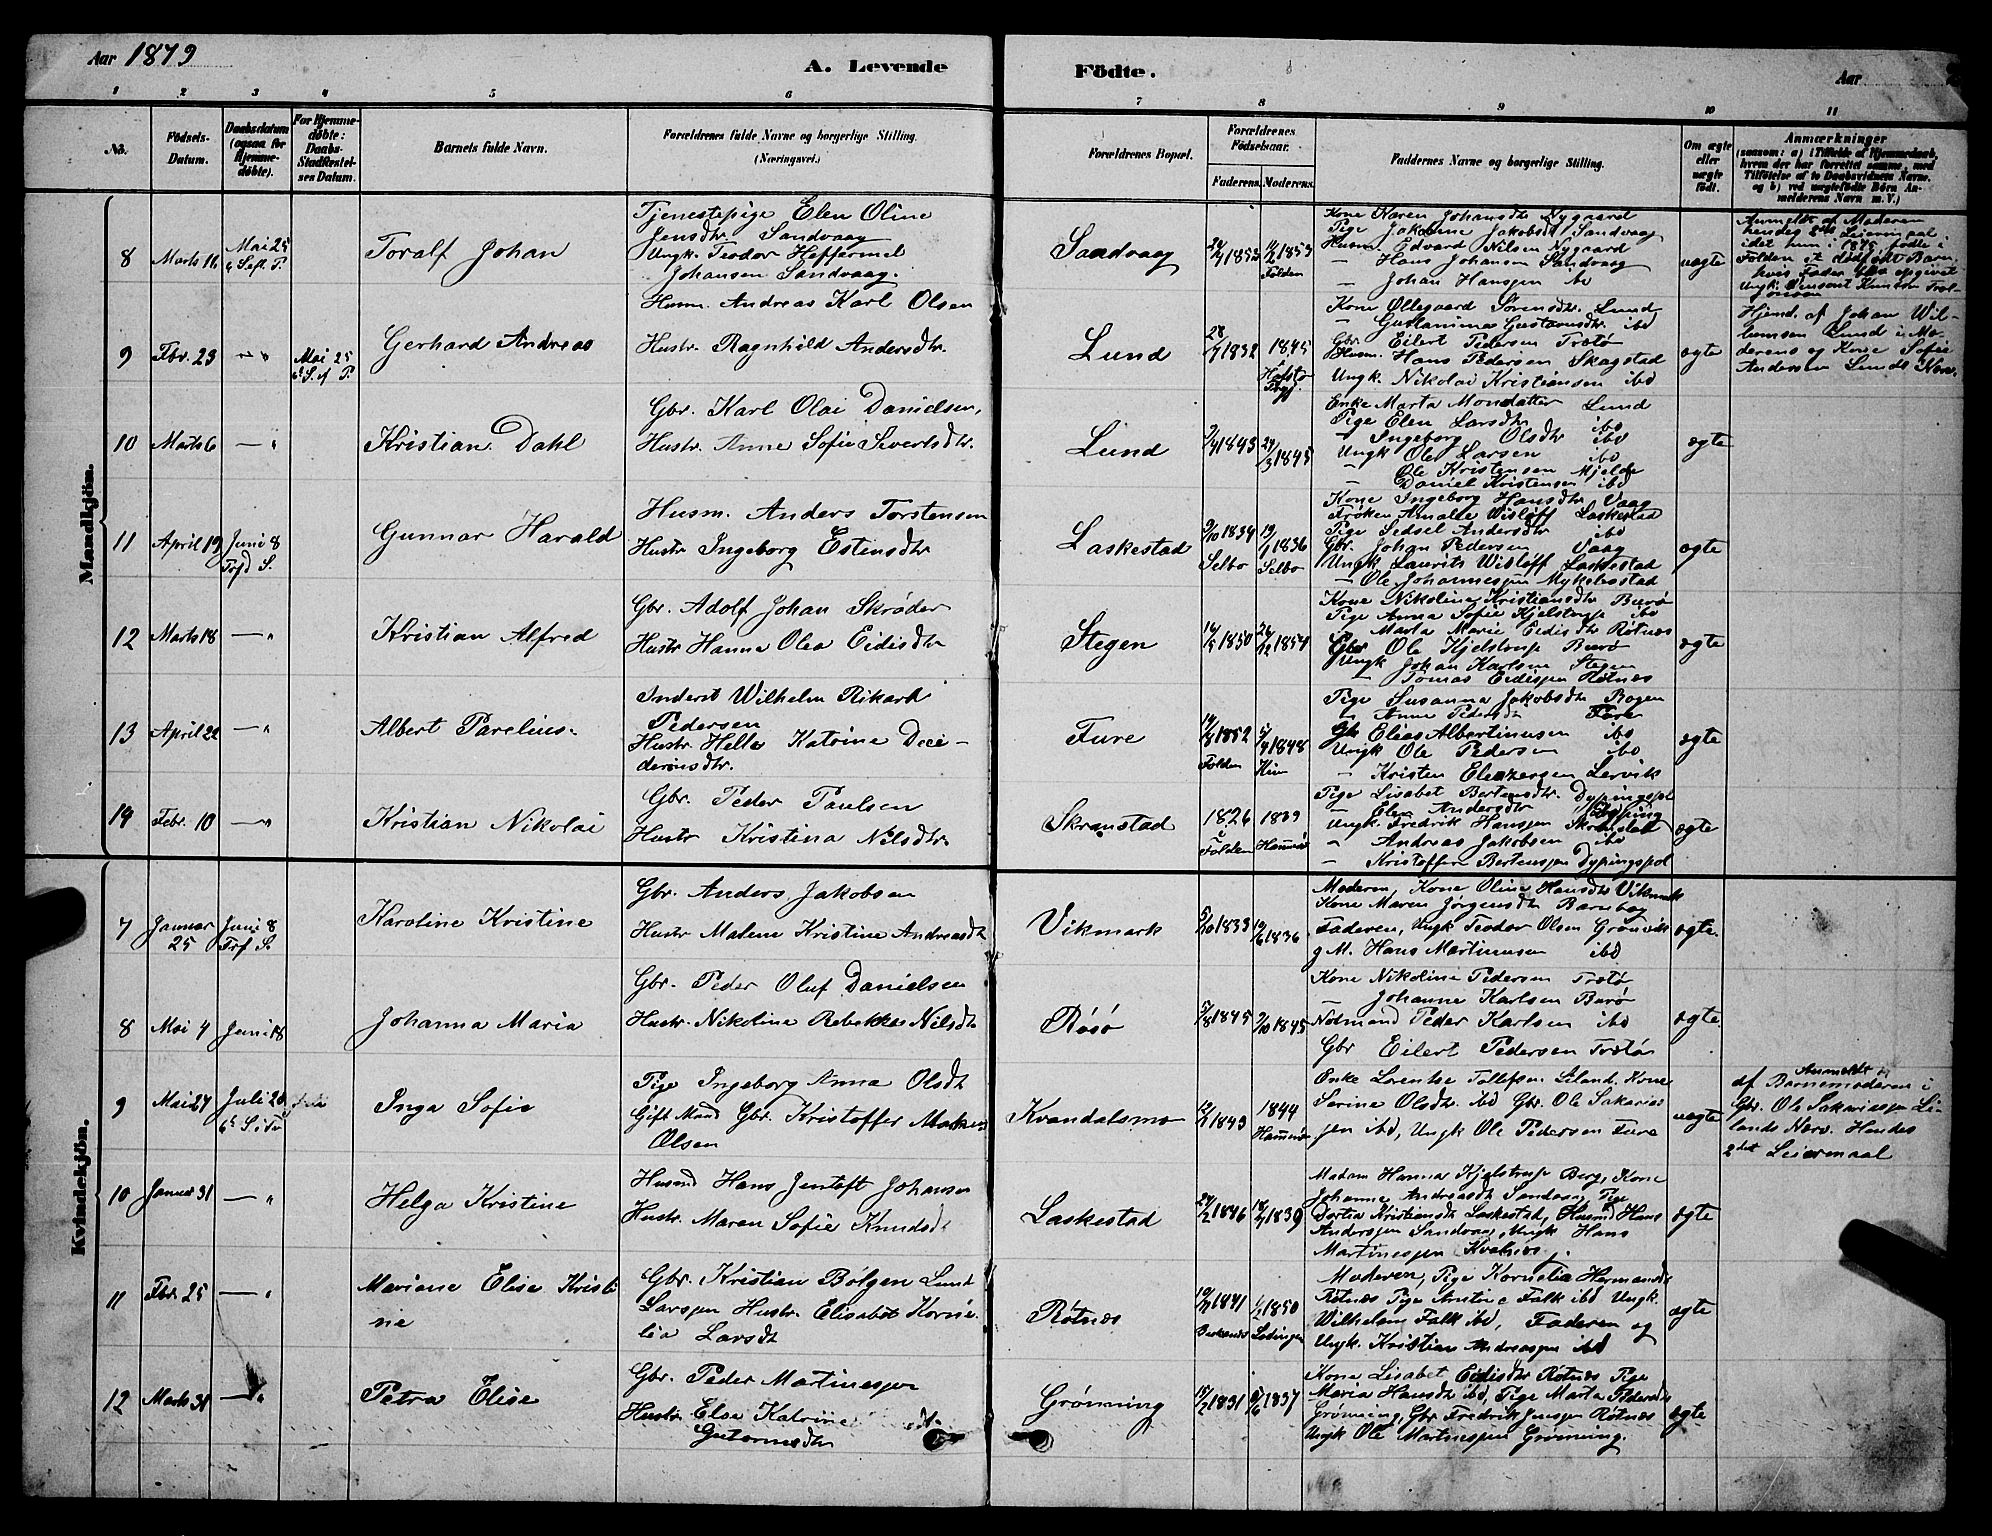 Aar 1879
A. Levende Födte.
Aar
1 2 3 4 5 6 7 8 9 10 11
No.
Födsels-
Datum.
Daabsdatum
(ogsaa for
Hjemme-
døbte).
For Hjemme-
døbte:
Daabs-
Stadfæstel-
ses Datum.
Barnets fulde Navn.
Forældrenes fulde Navne og borgerlige Stilling.
(Næringsvei.)
Forældrenes Bopæl.
Forældrenes
Fødselsaar.
Faderens. Moderens.
Faddernes Navne og borgerlige Stilling.
Om ægte
eller
uægte
født.
Anmærkninger
(saasom: a) i Tilfælde af Hjemmedaab,
hvem der har forrettet samme, med
Tilföielse af to Daabsvidners Navne,
og b) ved uægtefödte Börn An-
melderens Navn m. V.)
Mandkjön.
8
Marts 16
Mai 25
6 S. eft. P.
Toralf Johan
Tjenestepige Elen Oline
Jensdtr. Sandvaag
Ungk. Teodor Heffermel
Johansen Sandvaag.
Sandvaag
24/4 1853
11/2 1853
Folden
Kone Karen Johansdtr Nygaard
Pige Jakobine Jakobsdt Sandvaag
Husm. Edvard Nilsen Nygaard
— Hans Johansen Sandvaag
— Johan Hansen ibd
uægte
Anmeldt af Moderen
hendes 2det Leiermaal
idet hun i 1875 fødte i
Folden et dødfødt Barn,
hvis Fader blev opgivet
9
Fbr. 23
— "
Mai 25
6 S. ef P.
Gerhard Andreas
Husm. Andreas Karl Olsen
Hustr. Ragnhild Andersdtr.
Lund
28/7 1832
1845
Kone Ollegaard Sørensdtr. Lund
— Gustamina Gustavsdtr. ibd
Gbr. Eilert Pedersen Trøtø
Husm. Hans Pedersen Skagstad
Ungk. Nikolai Kristiansen ibd
ægte
Hjemd. af Johan Wil-
lumsen Lund i Mo-
derens og Kone Sofie
Andersen Lunds Nærv.
10
Marts 6
— "
Kristian Dahl
Gbr. Karl Olai Danielsen,
Hustr. Anne Sofie Sivertsdtr.
Lund
9/4 1843
29/3 1845
Enke Marta Monsdatter Lund
Pige Elen Larsdtr ibd
— Ingeborg Olsdtr ibd
Ungk Ole Larsen ibd
— Ole Kristensen Mjelde
— Daniel Kristensen ibd
ægte
11
April 19
Juni 8
Trfd S.
Gunnar Harald
Husm. Anders Torstensen
Hustr Ingeborg Estensdtr
Laskestad
9/10 1834
Selbo
19/1 1836
Selbo
Kone Ingeborg Hansdtr Vaag
Frøken Amalie Wisløff Laskestad
Pige Sedsel Andersdtr ibd
Gbr. Johan Pedersen Vaag
Ungk Laurits Wisløff Laskestad
— Ole Johannessen Myklebostad
ægte
12
Marts 18
— "
Kristian Alfred
Gbr. Adolf Johan Skrøder
Hustr Hanna Olea Eidisdtr
Stegen
14/5 1850
24/12 1854
Kone Nikoline Kristiansdtr Burø
Pige Anna Sofie Kjelstrup ibd
— Marta Marie Eidisdtr Røtnæs
Gbr Ole Kjelstrup Burø
Ungk Johan Karlsen Stegen
— Tomas Eidissen Røtnæs
ægte
13
April 22
— "
Albert Parelius.
Inderst Wilhelm Rikard
Pedersen
Hustr Helle Katrine Dei-
deriksdtr.
Fure
14/8 1852
Folden
5/9 1848
Pige Susanna Jakobsdt Bogen
— Anne Pedersdt Fure
Gbr Elias Albertinusen ibd
Ungk Ole Pedersen ibd
— Kristen Eleazersen Lervik
ægte
14
Febr. 10
— "
Kristian Nikolai
Gbr. Peder Paulsen
Hustr Kristina Nilsdtr.
Skranstad
1826
i Folden
1839
Hammerø
Pige Lisabet Bertensdtr. Dypingspol
— Elen Andersdtr Dyping
Ungk. Fredrik Hanssen Skranstad
— Andreas Jakobsen ibd
— Kristoffer Bertenssen Dypingspol
ægte
Kvindekjön.
7
Januar
25
Juni 8
Trf S.
Karoline Kristine
Gbr. Anders Jakobsen
Hustr Malene Kristine Andreasdt
Vikmark
5/10 1833
19/6 1836
Moderen, Kone Oline Hansdtr Vikmark
Kone Maren Jørgensdtr Barnbog
Faderen, Ungk Teodor Olsen Grønvik
g M. Hans Martinussen ibd
ægte.
8
Mai 4
Juni 18
Johanna Maria
Gbr. Peder Oluf Danielsen
Hustr. Nikolina Rebekka Nilsdt
Røsø
5/8 1845
9/10 1845
Kone Nikoline Pedersen Trøtø
— Johanne Karlsen Burø
Nodmand Peder Karlsen ibd
Gbr Eilert Pedersen Trøtø
ægte.
9
Mai 27
Juli 20
Inga Sofie
Pige Ingeborg Anna Olsdt
Gift Mand Gbr. Kristoffer
Olsen
Kvandalsmo
12/1 1849
1844
Hammerø
Enke Lorentse Tollefsen Leland. Kone
Serine Olsdtr. ibd Gbr. Ole Sakarias
sen ibd, Ungk Ole Pedersen Fure
uægte
Anmeldt
af Barnemoderen i
Gbr. Ole Sakariassen Le-
lands Nærv. Hendes
2det Leiermaal
10
Januar 31
— "
Helga Kristine
Husmd Hans Jentoft Johansen
Hustr. Maren Sofie Knudsdt
Laskestad
24/2 1846
14/7 1839
Madam Hanna Kjelstrup Berg, Kone
Johanne Andreasdt Sandvaag, Pige
Dortea Kristiansdt Laskestad, Husmd Hans
Anderssen Sandvaag, Ungk Hans
Martinessen Kvalnæs.
ægte
11
Fbr. 25
— "
Mariane Elise Kristi
ne
Gbr. Kristian Bølgen Lund
Larssen Hustr. Elisabet Korne-
lia Larsdt
Røtnæs
19/7 1841
1/2 1850
Lødingen
Moderen, Pige Kornelia Hermansdt
Røtnæs Pige Anstine Falk ibd Ungk.
Wilhelm Falk ibd, Faderen og
Ungk. Kristian Andreassen ibd
ægte
12
Marts 31
— "
Petra Elise
Gbr. Peder Martinessen
Hustr. Else Katrine
Gutormsdtr
Grønning
15/2 1831
8/6 1837
Kone Lisabet Eidisdtr Røtnæs Pige
Maria Hansdtr ibd, Pige Marta Pedersdt
Grønning, Gbr Fredrik Jenssen Røtnæs
Ungk Ole Martinessen Grønning.
ægte